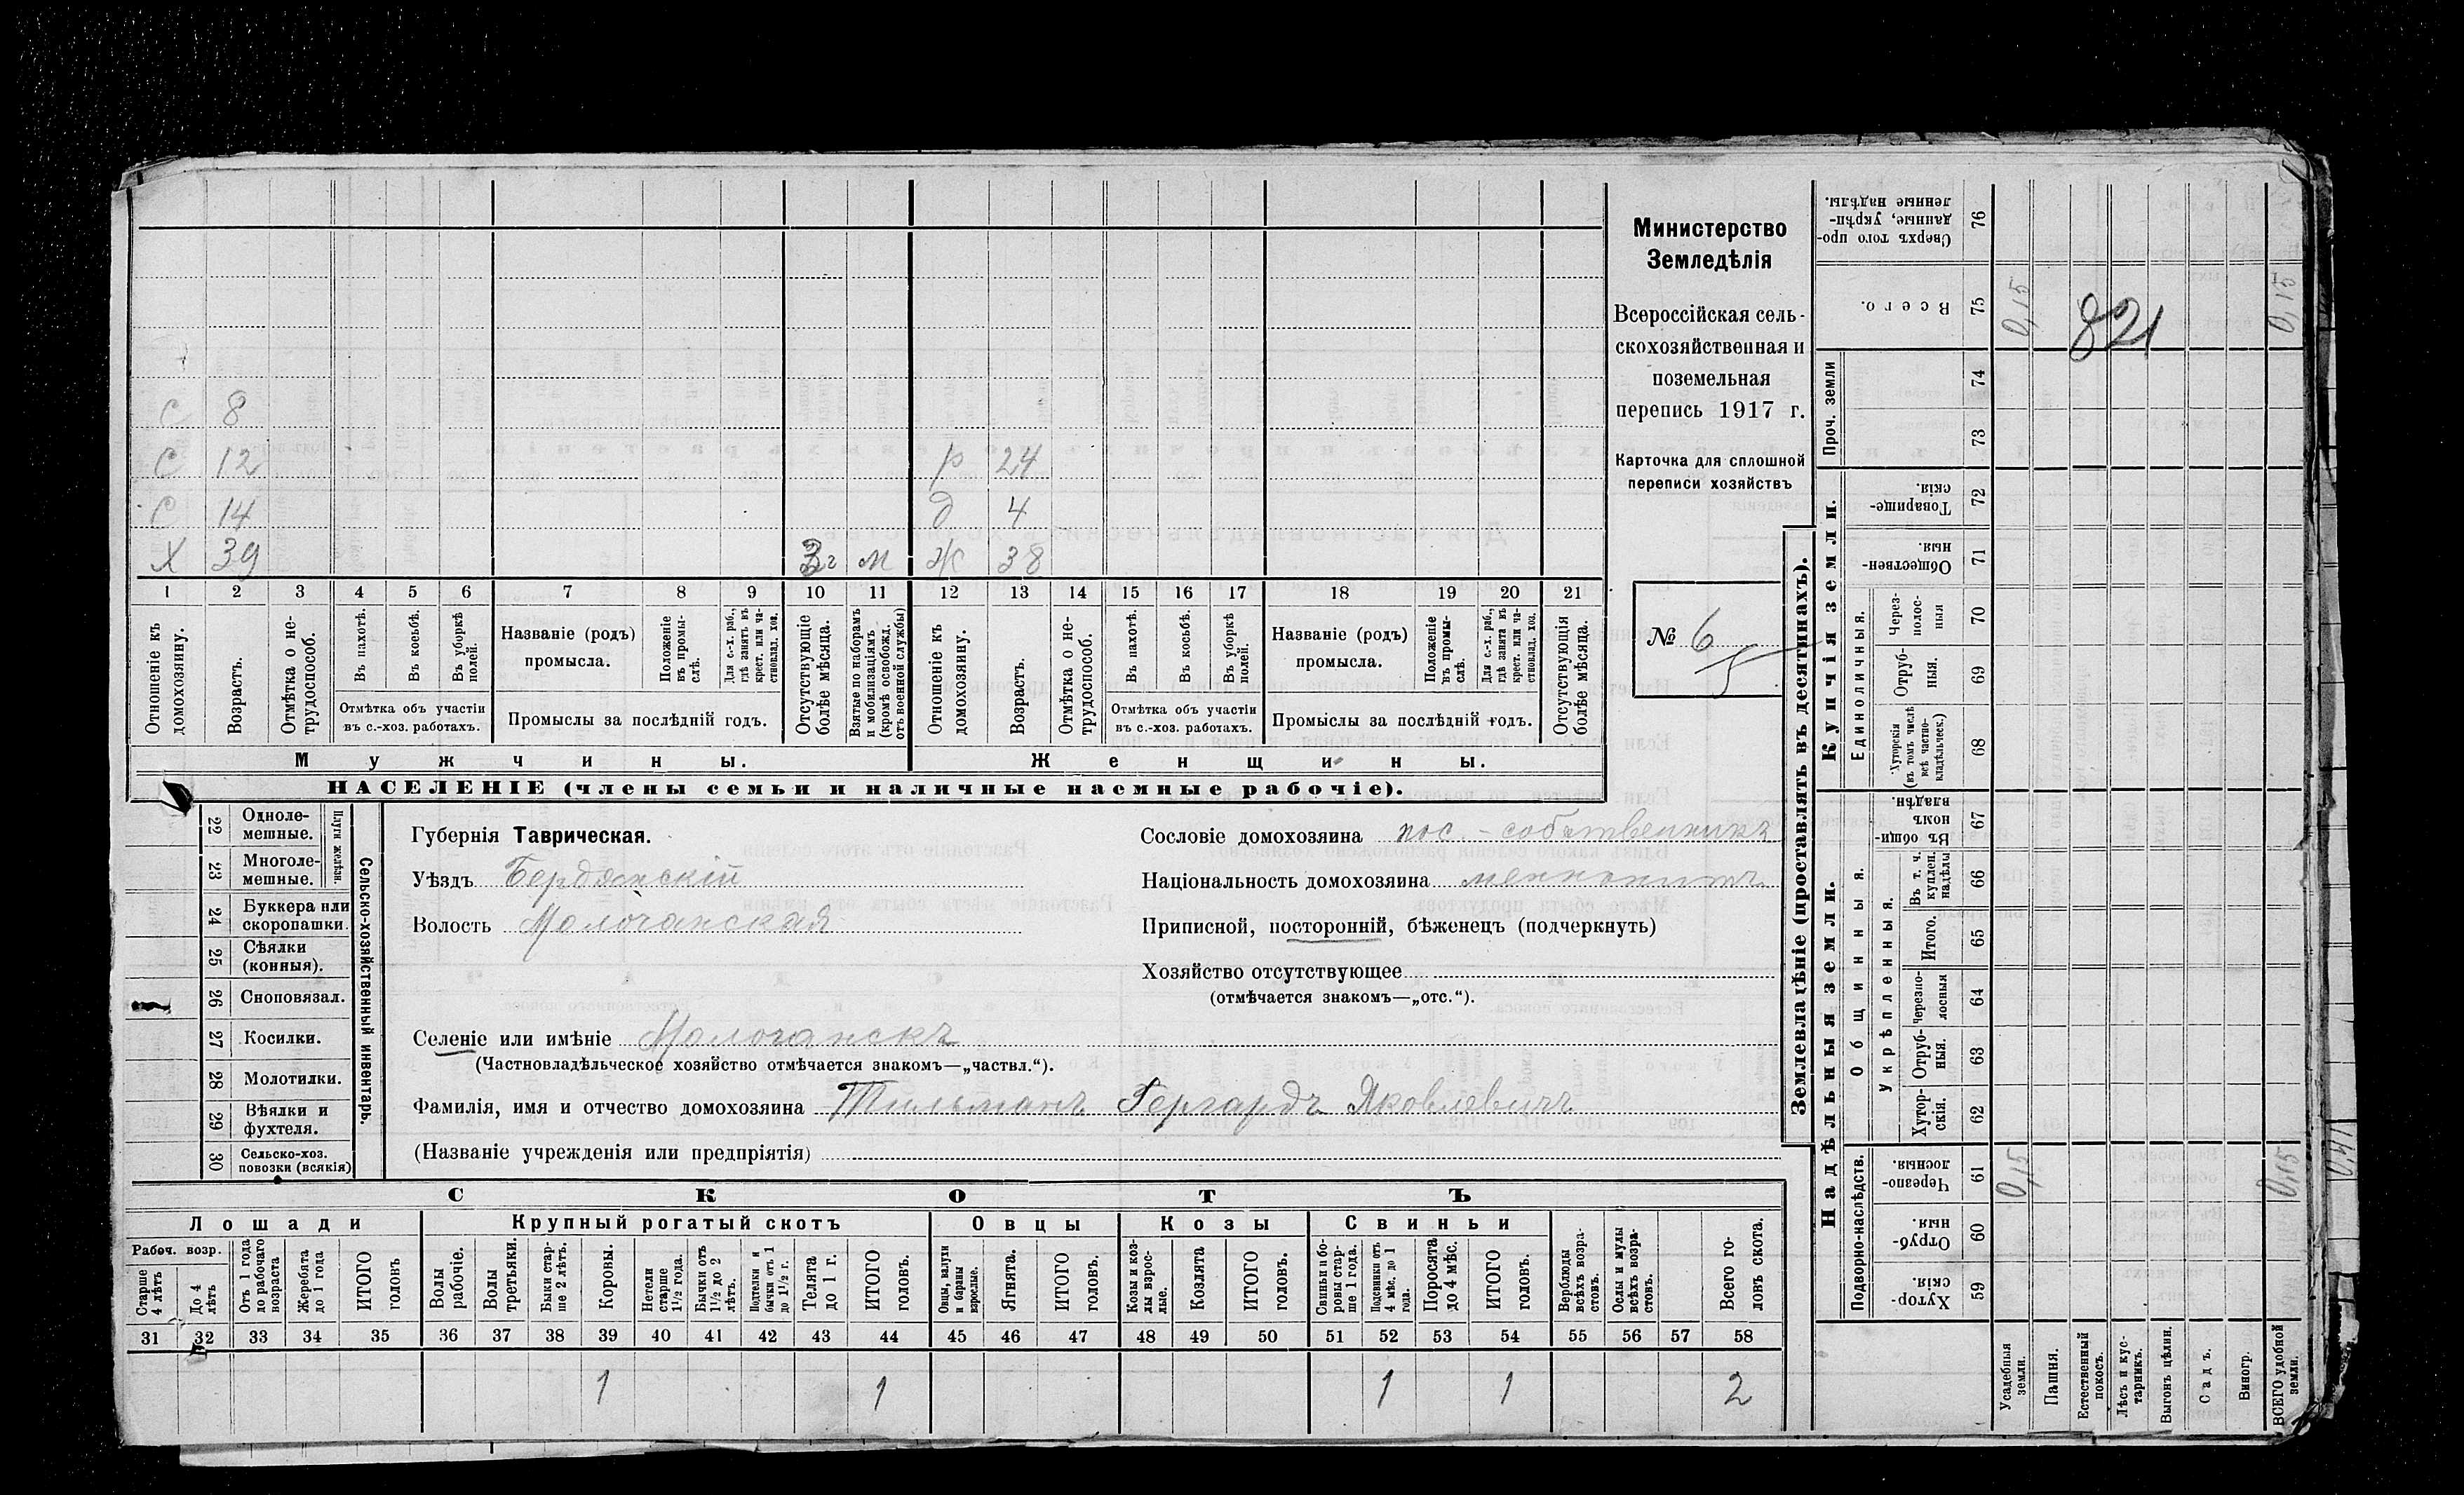 С 8
С 12 р 24
С 14 д 4
Х 39 3 г м ж 38
1 2 3 4 5 6 7 8 9 10 11 12 13 14 15 16 17 18 19 20 21
Отношеніе къ домохозяину.
Возрастъ.
Отмѣтка о не-
трудоспособ.
Въ пахотѣ.
Въ косьбѣ.
Въ уборкѣ полей.
Отмѣтка объ участіи
въ с.-хоз. работахъ.
Названіе (родъ)
промысла.
Положеніе въ промы-
слѣ.
Для с.-х. раб., гдѣ занятъ въ крест. или ча-
стновлад. хоз.
Промыслы за послѣдній годъ.
Отсутствующіе болѣе мѣсяца.
Взятые по наборамъ и мобилизаціямъ (кромѣ освобожд. отъ военной службы)
Отношеніе къ домохозяину.
Возрастъ.
Отмѣтка о не-
трудоспособ.
Въ пахотѣ.
Въ косьбѣ.
Въ уборкѣ полей.
Отмѣтка объ участіи
въ с.-хоз. работахъ.
Названіе (родъ)
промысла.
Положеніе въ промы-
слѣ.
Для с.-х. раб., гдѣ занята въ крест. или ча-
стновлад. хоз.
Промыслы за послѣдній годъ.
Отсутствующія болѣе мѣсяца.
Мужчины.
Женщины.
НАСЕЛЕНІЕ (члены семьи и наличные наемные рабочіе).
Министерство
Земледѣлія
Всероссійская сель-
скохозяйственная и
поземельная
перепись 1917 г.
Карточка для сплошной
переписи хозяйствъ
№ 6
5
22 Одноле-
мешные.
23 Многоле-
мешные.
Плуги желѣзн.
24 Буккера или
скоропашки.
25 Сѣялки
(конныя).
26 Сноповязал.
27 Косилки.
28 Молотилки.
29 Вѣялки и
фухтеля.
30 Сельско-хоз.
повозки (всякія)
Сельско-хозяйственный инвентарь.
Губернія Таврическая.
Уѣздъ Бердянскій
Волость Молочанская
Сословіе домохозяина пос.-собственникъ
Національность домохозяина меннонитъ
Приписной, посторонній, бѣженецъ (подчеркнуть)
Хозяйство отсутствующее
(отмѣчается знакомъ—„отс.“).
Селеніе или имѣніе Молочанскъ
(Частновладѣльческое хозяйство отмѣчается знакомъ—„частвл.“).
Фамилія, имя и отчество домохозяина Тильманъ Гергардъ Яковлевичъ
(Названіе учрежденія или предпріятія)
СКОТЪ
Лошади
Крупный рогатый скотъ
Овцы
Козы
Свиньи
Рабоч. возр.
Старше 4 лѣтъ
До 4 лѣтъ
Отъ 1 года до рабочаго возраста
Жеребята до 1 года
ИТОГО головъ
Волы рабочіе.
Волы третьяки.
Быки стар-
ше 2 лѣтъ.
Коровы.
Нетели старше 1½ года.
Бычки отъ 1½ до 2 лѣтъ.
Подтелки и бычки отъ 1 до 1½ г.
Телята до 1 г.
ИТОГО головъ.
Овцы, валухи и бараны взрослые.
Ягнята.
ИТОГО головъ.
Козы и коз-
лы взрос-
лые.
Козлята
ИТОГО головъ.
Свиньи и бо-
ровы стар-
ше 1 года.
Подсвинки отъ 4 мѣс. до 1 года.
Поросята до 4 мѣс.
ИТОГО головъ.
Верблюды всѣхъ возра-
стовъ.
Ослы и мулы всѣхъ возра-
стовъ.
Всего го-
ловъ скота.
31 32 33 34 35 36 37 38 39 40 41 42 43 44 45 46 47 48 49 50 51 52 53 54 55 56 57 58
1 1 1 1 2
Землевладѣніе (проставлять въ десятинахъ).
Надѣльныя земли.
Купчія земли.
Проч. земли
Сверхъ того про-
данные, укрѣп-
ленные надѣлы.
76
Всего.
75
0,15
821
0,15
74
73
Товарище-
скія.
72
Обществен-
ныя.
71
Единоличныя.
Через-
полос-
ныя
70
Отруб-
ныя.
69
Хуторскія (въ томъ числѣ всѣ частно-
владѣльческ.)
68
Общинныя.
Въ общи-
номъ владѣн.
67
Укрѣпленныя.
Въ т. ч. куплен. надѣлы
66
Итого.
65
Черезпо-
лосныя
64
Отруб-
ныя.
63
Хутор-
скія.
62
Подворно-наслѣдств.
Черезпо-
лосныя.
61
0,15
0,15
0,41
Отруб-
ныя.
60
Хутор-
скія.
59
Усадебныя земли.
Пашня.
Естественный покосъ.
Лѣсъ и кус-
тарникъ.
Выгонъ цѣлин.
Садъ.
Виногр.
ВСЕГО удобной земли.